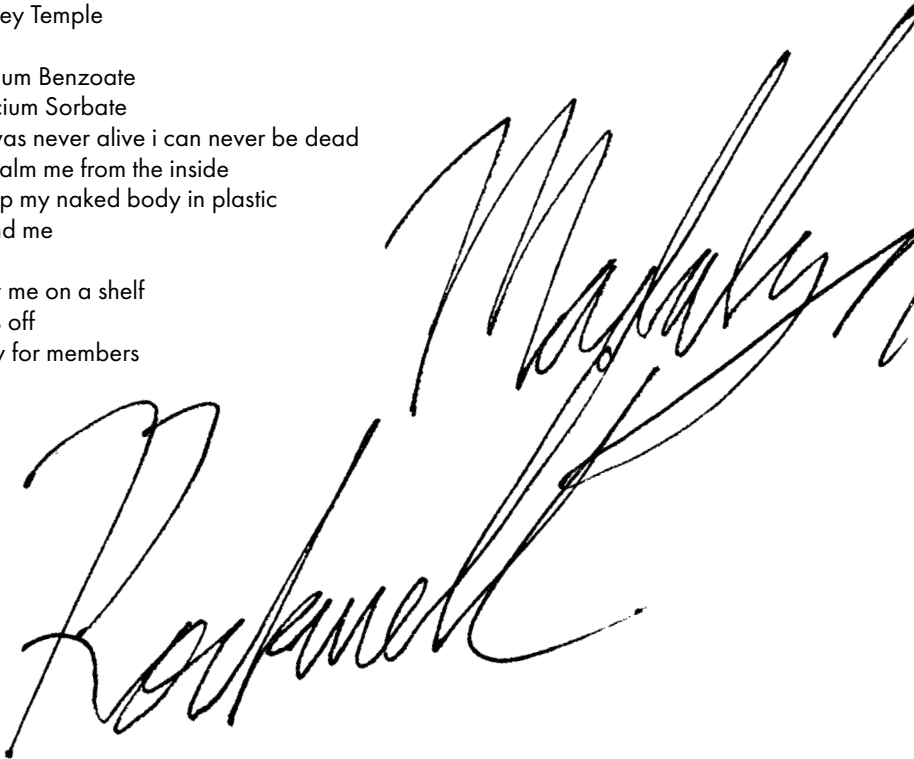 ey Temple
um Benzoate
cium Sorbate
was never alive i can never be dead
alm me from the inside
p my naked body in plastic
nd me
me on a shelf
off
y for members
Rockwell